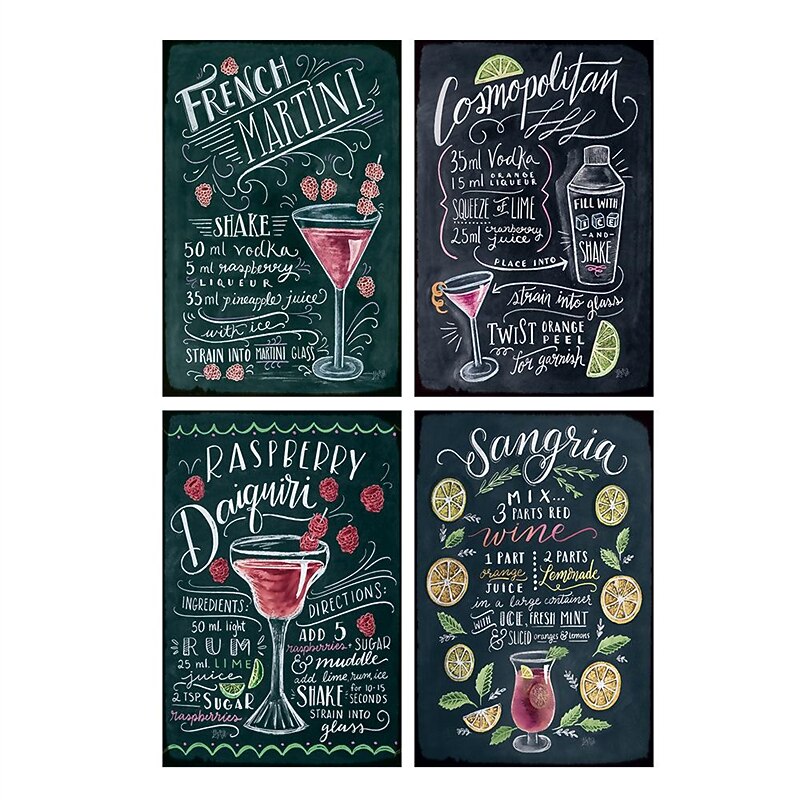 FRENCH
MARTINI
SHAKE
50 ml vodka
5 ml raspberry
LIQUEUR
35 ml pineapple juice
with ice
STRAIN INTO MARTINI GLASS
Cosmopolitan
35 ml Vodka
15 ml ORANGE LIQUEUR
SQUEEZE OF LIME
25 ml cranberry juice
PLACE INTO
FILL WITH
ICE
AND
SHAKE
strain into glass
TWIST ORANGE PEEL
for garnish
RASPBERRY
Daiquiri
INGREDIENTS:
50 ml. light
RUM
25 ml. LIME
juice
2 TSP. SUGAR
raspberries
DIRECTIONS:
ADD 5
raspberries + SUGAR
& muddle
add lime, rum, ice
SHAKE for 10-15 SECONDS
STRAIN INTO
glass
Sangria
MIX...
3 PARTS RED
wine
1 PART
orange
JUICE
2 PARTS
Lemonade
in a large container
WITH ICE, FRESH MINT
& SLICED oranges & lemons